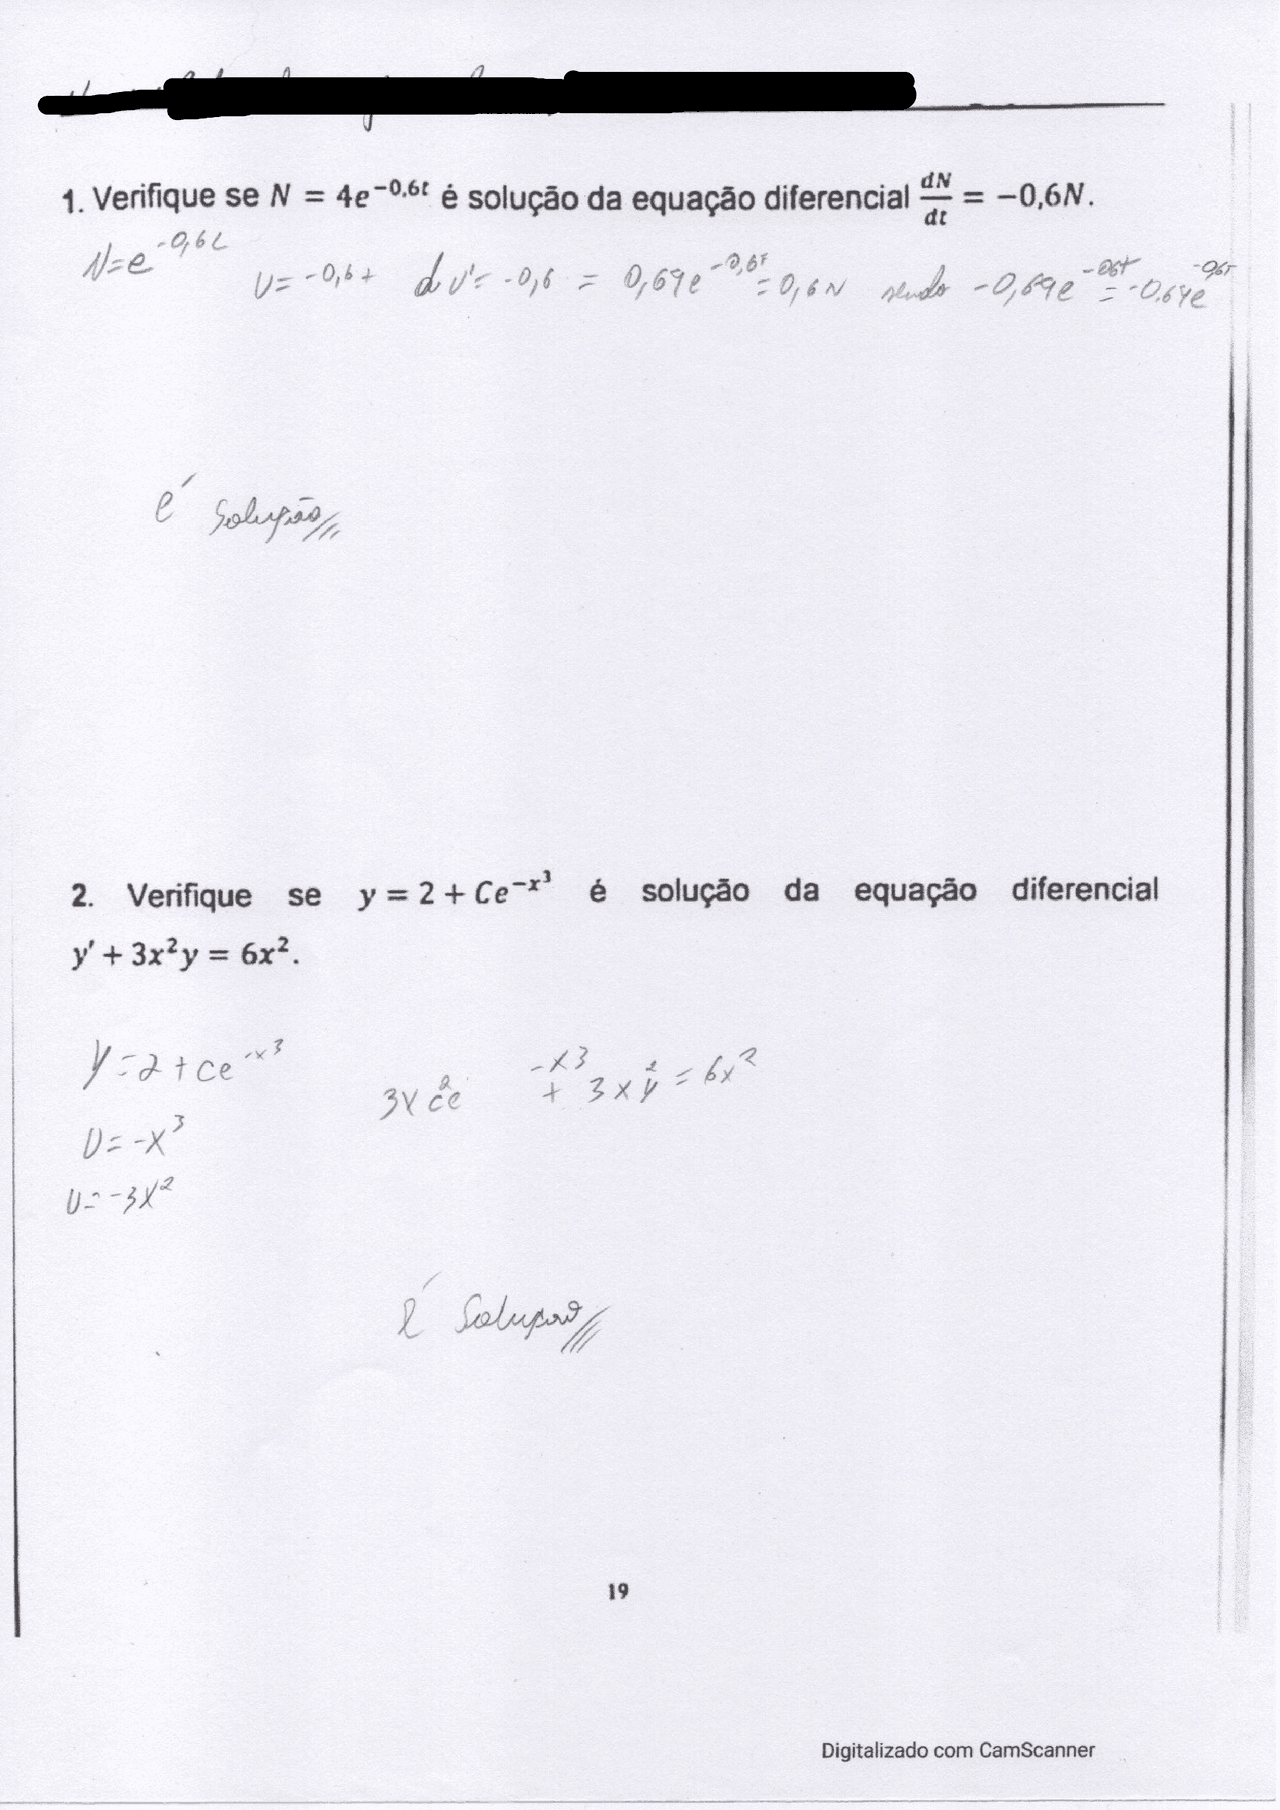 1. Verifique se N = 4e^-0,6t é solução da equação diferencial dN/dt = -0,6N.
N=e^-0,6t
U= -0,6t d u'= -0,6 = 0,69e^-0,6t = 0,6N sendo -0,69e^-0,6t = -0.69e^-0,6t
é solução
2. Verifique se y = 2 + Ce^-x³ é solução da equação diferencial
y' + 3x²y = 6x².
y=2+ce^-x³
3x²ce^-x³ + 3x²y = 6x²
U= -x³
U= -3x²
é solução
19
Digitalizado com CamScanner